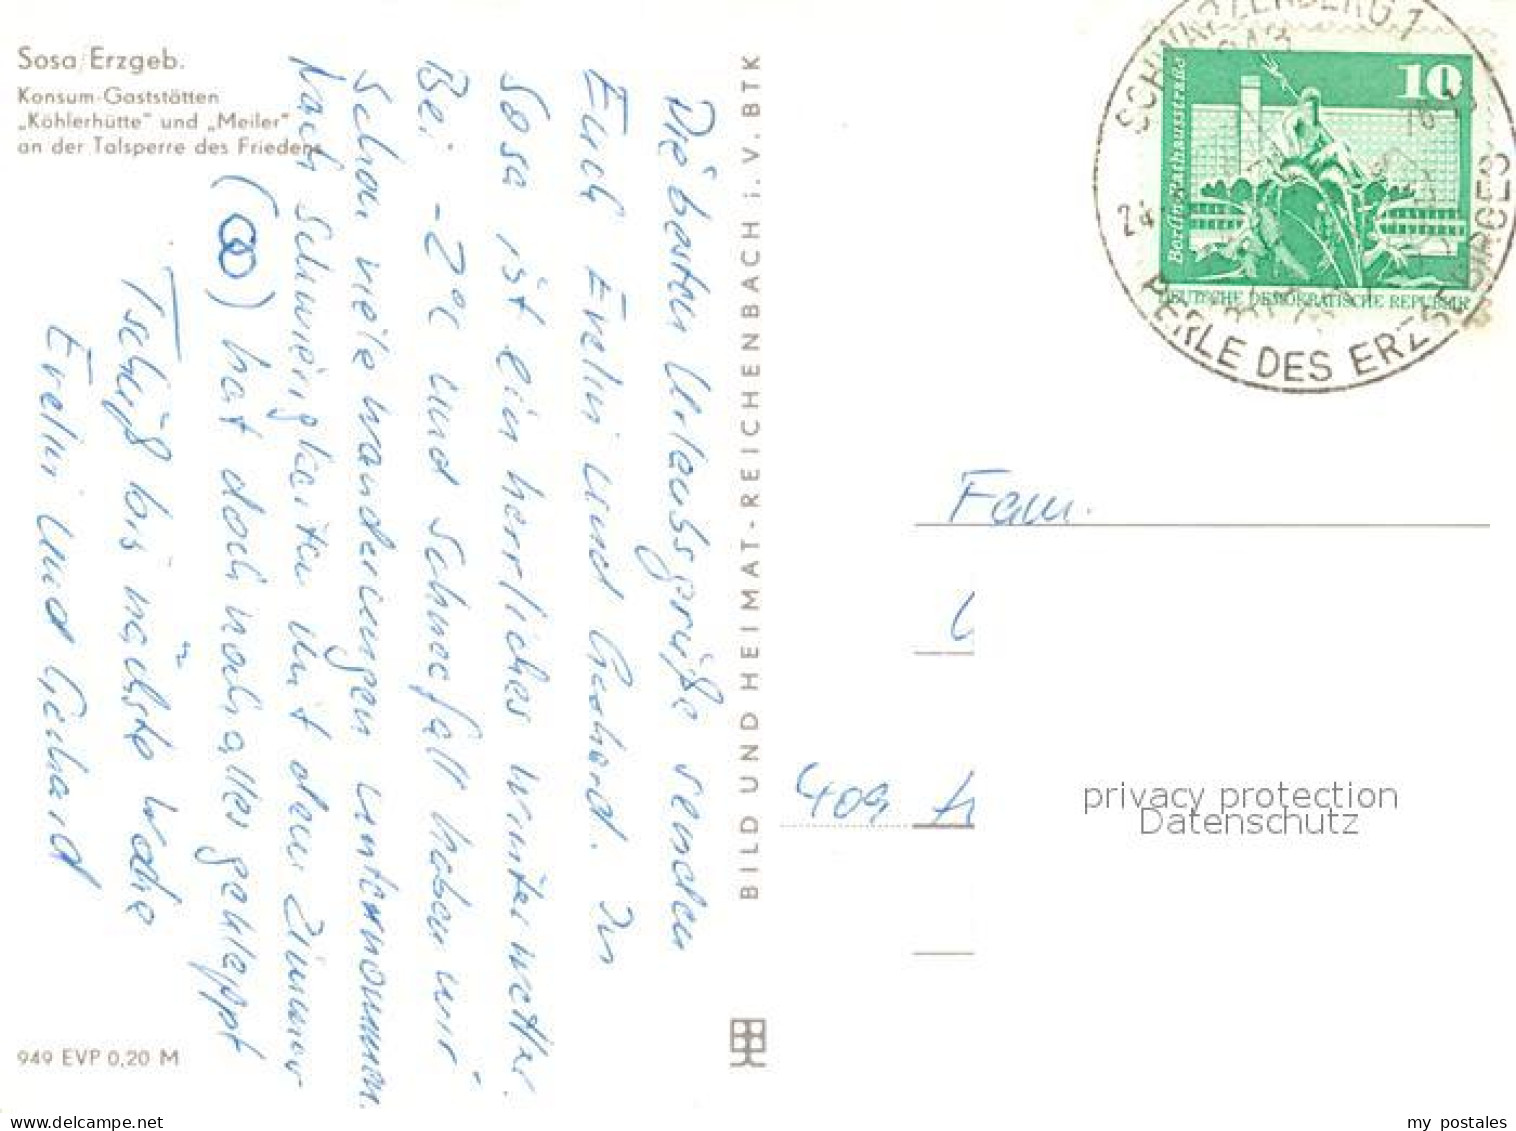 Sosa/Erzgeb.
Konsum-Gaststätten
„Köhlerhütte" und „Meiler"
an der Talsperre des Friedens
Die besten Urlaubsgrüße senden
Euch Evelin und Gerhard. In
Sosa ist ein herrliches Winterwetter.
Bei -2°C und Schneefall haben wir
schon viele Wanderungen unternommen.
Nach Schwierigkeiten mit dem Zimmer
hat doch noch alles geklappt
Tschüß bis nächste Woche
Evelin und Gerhard
949 EVP 0,20 M
BILD UND HEIMAT-REICHENBACH i. V. BTK
SCHWARZENBERG 1
PERLE DES ERZGEBIRGES
24
10
Berlin-Rathausstraße
DEUTSCHE DEMOKRATISCHE REPUBLIK
Fam.
409
privacy protection
Datenschutz
www.delcampe.net
my_postales